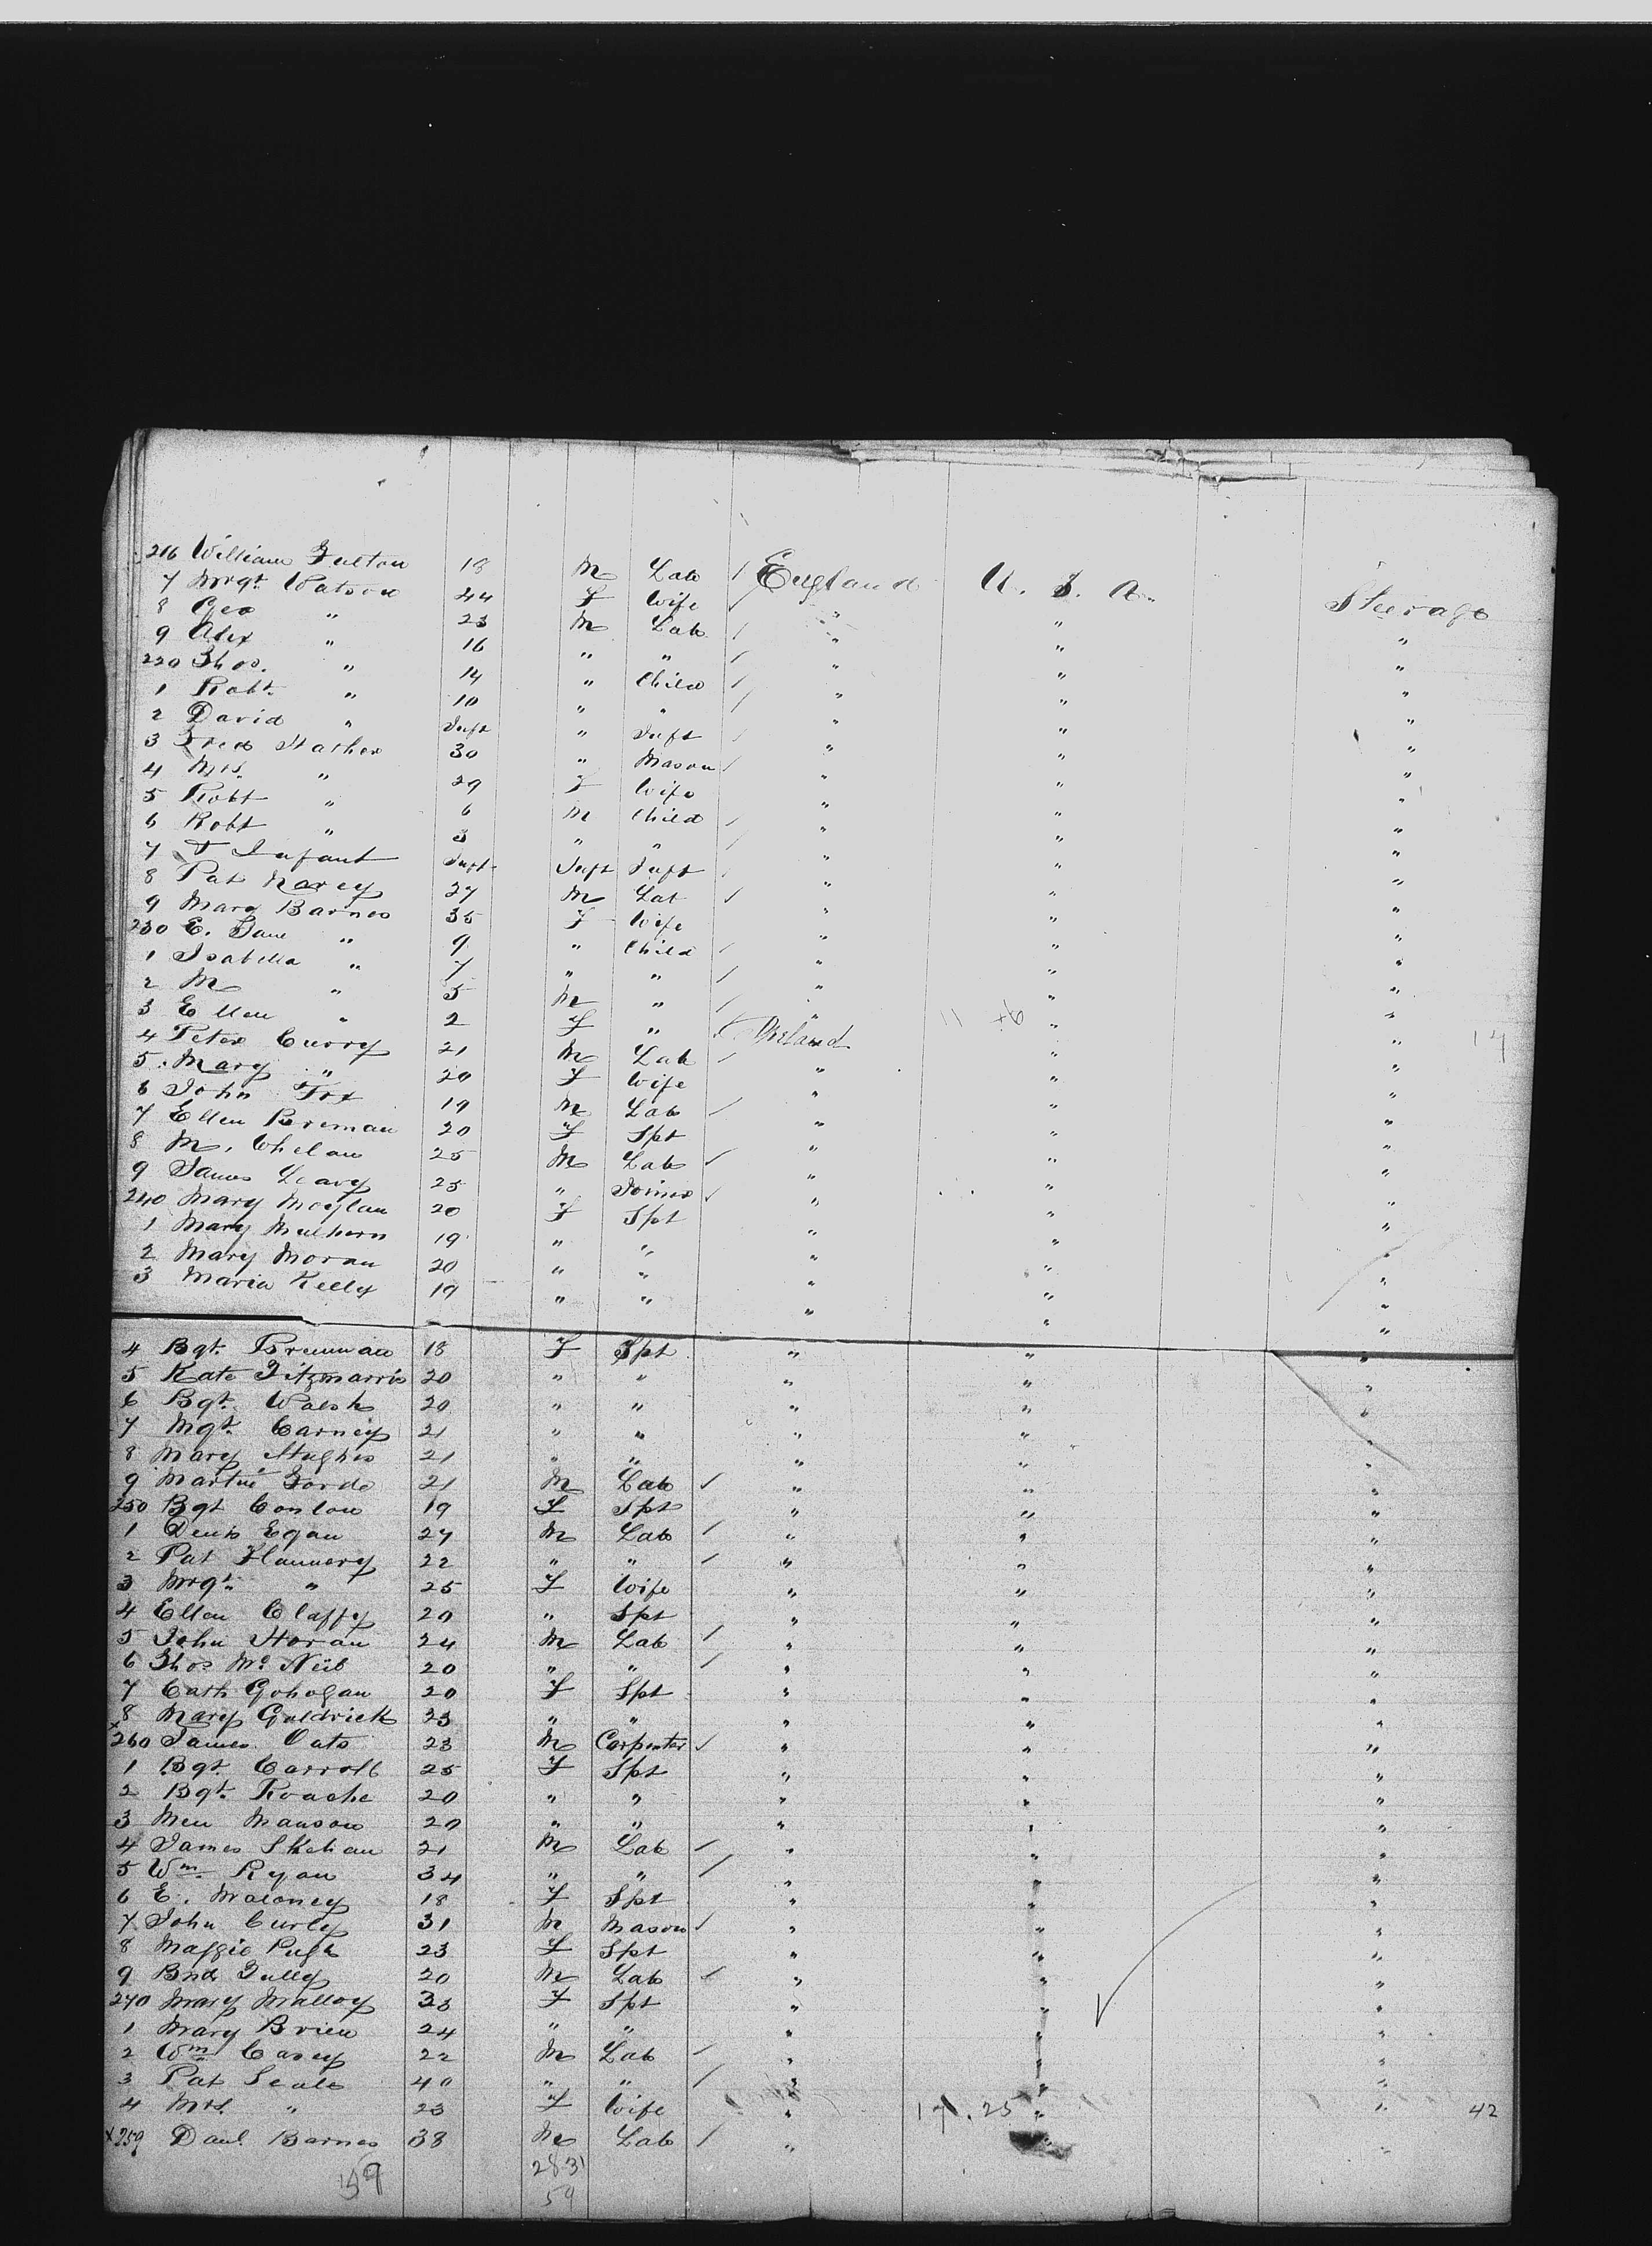 216 William Fulton 18 M Lab / England U. S. A. Steerage
7 Mrgt. Watson 44 F Wife / " " "
8 Geo " 23 M Lab / " " "
9 Alex " 16 " " / " " "
220 Thos. " 14 " Child / " " "
1 Robt. " 10 " " / " " "
2 David " Inft " Inft / " " "
3 30 " Mason / " " "
4 Mrs. " 29 F Wife " " "
5 Robt " 6 M Child / " " "
6 Robt " 3 " " / " " "
7 & Infant Inft Inft Inft / " " "
8 Pat 27 M Lab / " " "
9 Mary Barnes 35 F Wife " " "
230 E. Jane " 9 " Child / " " "
1 Isabella " 7 " " / " " "
2 M " 5 M " / " " "
3 Ellen " 2 F " / " 11 + 6 " " 17
4 Peter Curry 21 M Lab / Ireland " "
5 Mary " 20 F Wife " " "
6 John Fox 19 M Lab / " " "
7 Ellen Brennan 20 F Spt " " "
8 M. Whelan 25 M Lab / " " "
9 James Leavy 25 " Joiner / " " "
240 Mary Moylan 20 F Spt " " "
1 Mary Mulhern 19 " " " " "
2 Mary Moran 20 " " " " "
3 Maria Kelly 19 " " " " "
4 Bgt. Brennan 18 F Spt " " "
5 Kate Fitzmarris 20 " " " " "
6 Bgt. Walsh 20 " " " " "
7 Mgt. Carney 21 " " " " "
8 Mary Hughes 21 " " " " "
9 Martin Forde 21 M Lab / " " "
250 Bgt Conlon 19 F Spt " " "
1 Denis Egan 27 M Lab / " " "
2 Pat Flannery 22 " " / " " "
3 Mrgt. " 25 F Wife " " "
4 Ellen Claffy 20 " Spt " " "
5 John Horan 24 M Lab / " " "
6 Thos Mc Neil 20 " " / " " "
7 Cath Gohogan 20 F Spt " " "
8 Mary Goldrick 23 " " " " "
x 260 James Oats 23 M Carpenter / " " "
1 Bgt. Carroll 25 F Spt " " "
2 Bgt. Roache 20 " " " " "
3 Manson 20 " " " " "
4 James Skehan 21 M Lab / " " "
5 Wm. Ryan 34 " " / " " "
6 E. Maloney 18 F Spt " " "
7 John Curley 31 M Mason / " " "
8 Maggie Pugh 23 F Spt " " "
9 Bnd Tully 20 M Lab / " " "
270 Mary Malloy 23 F Spt " " "
1 Mary Brien 24 " " " " "
2 Wm Casey 22 M Lab / " " "
3 Pat Scale 40 " " / " " "
4 Mrs. " 23 F Wife " 17 . 25 " " 42
x 259 Danl. Barnes 38 M Lab / " " "
59 28 31
59